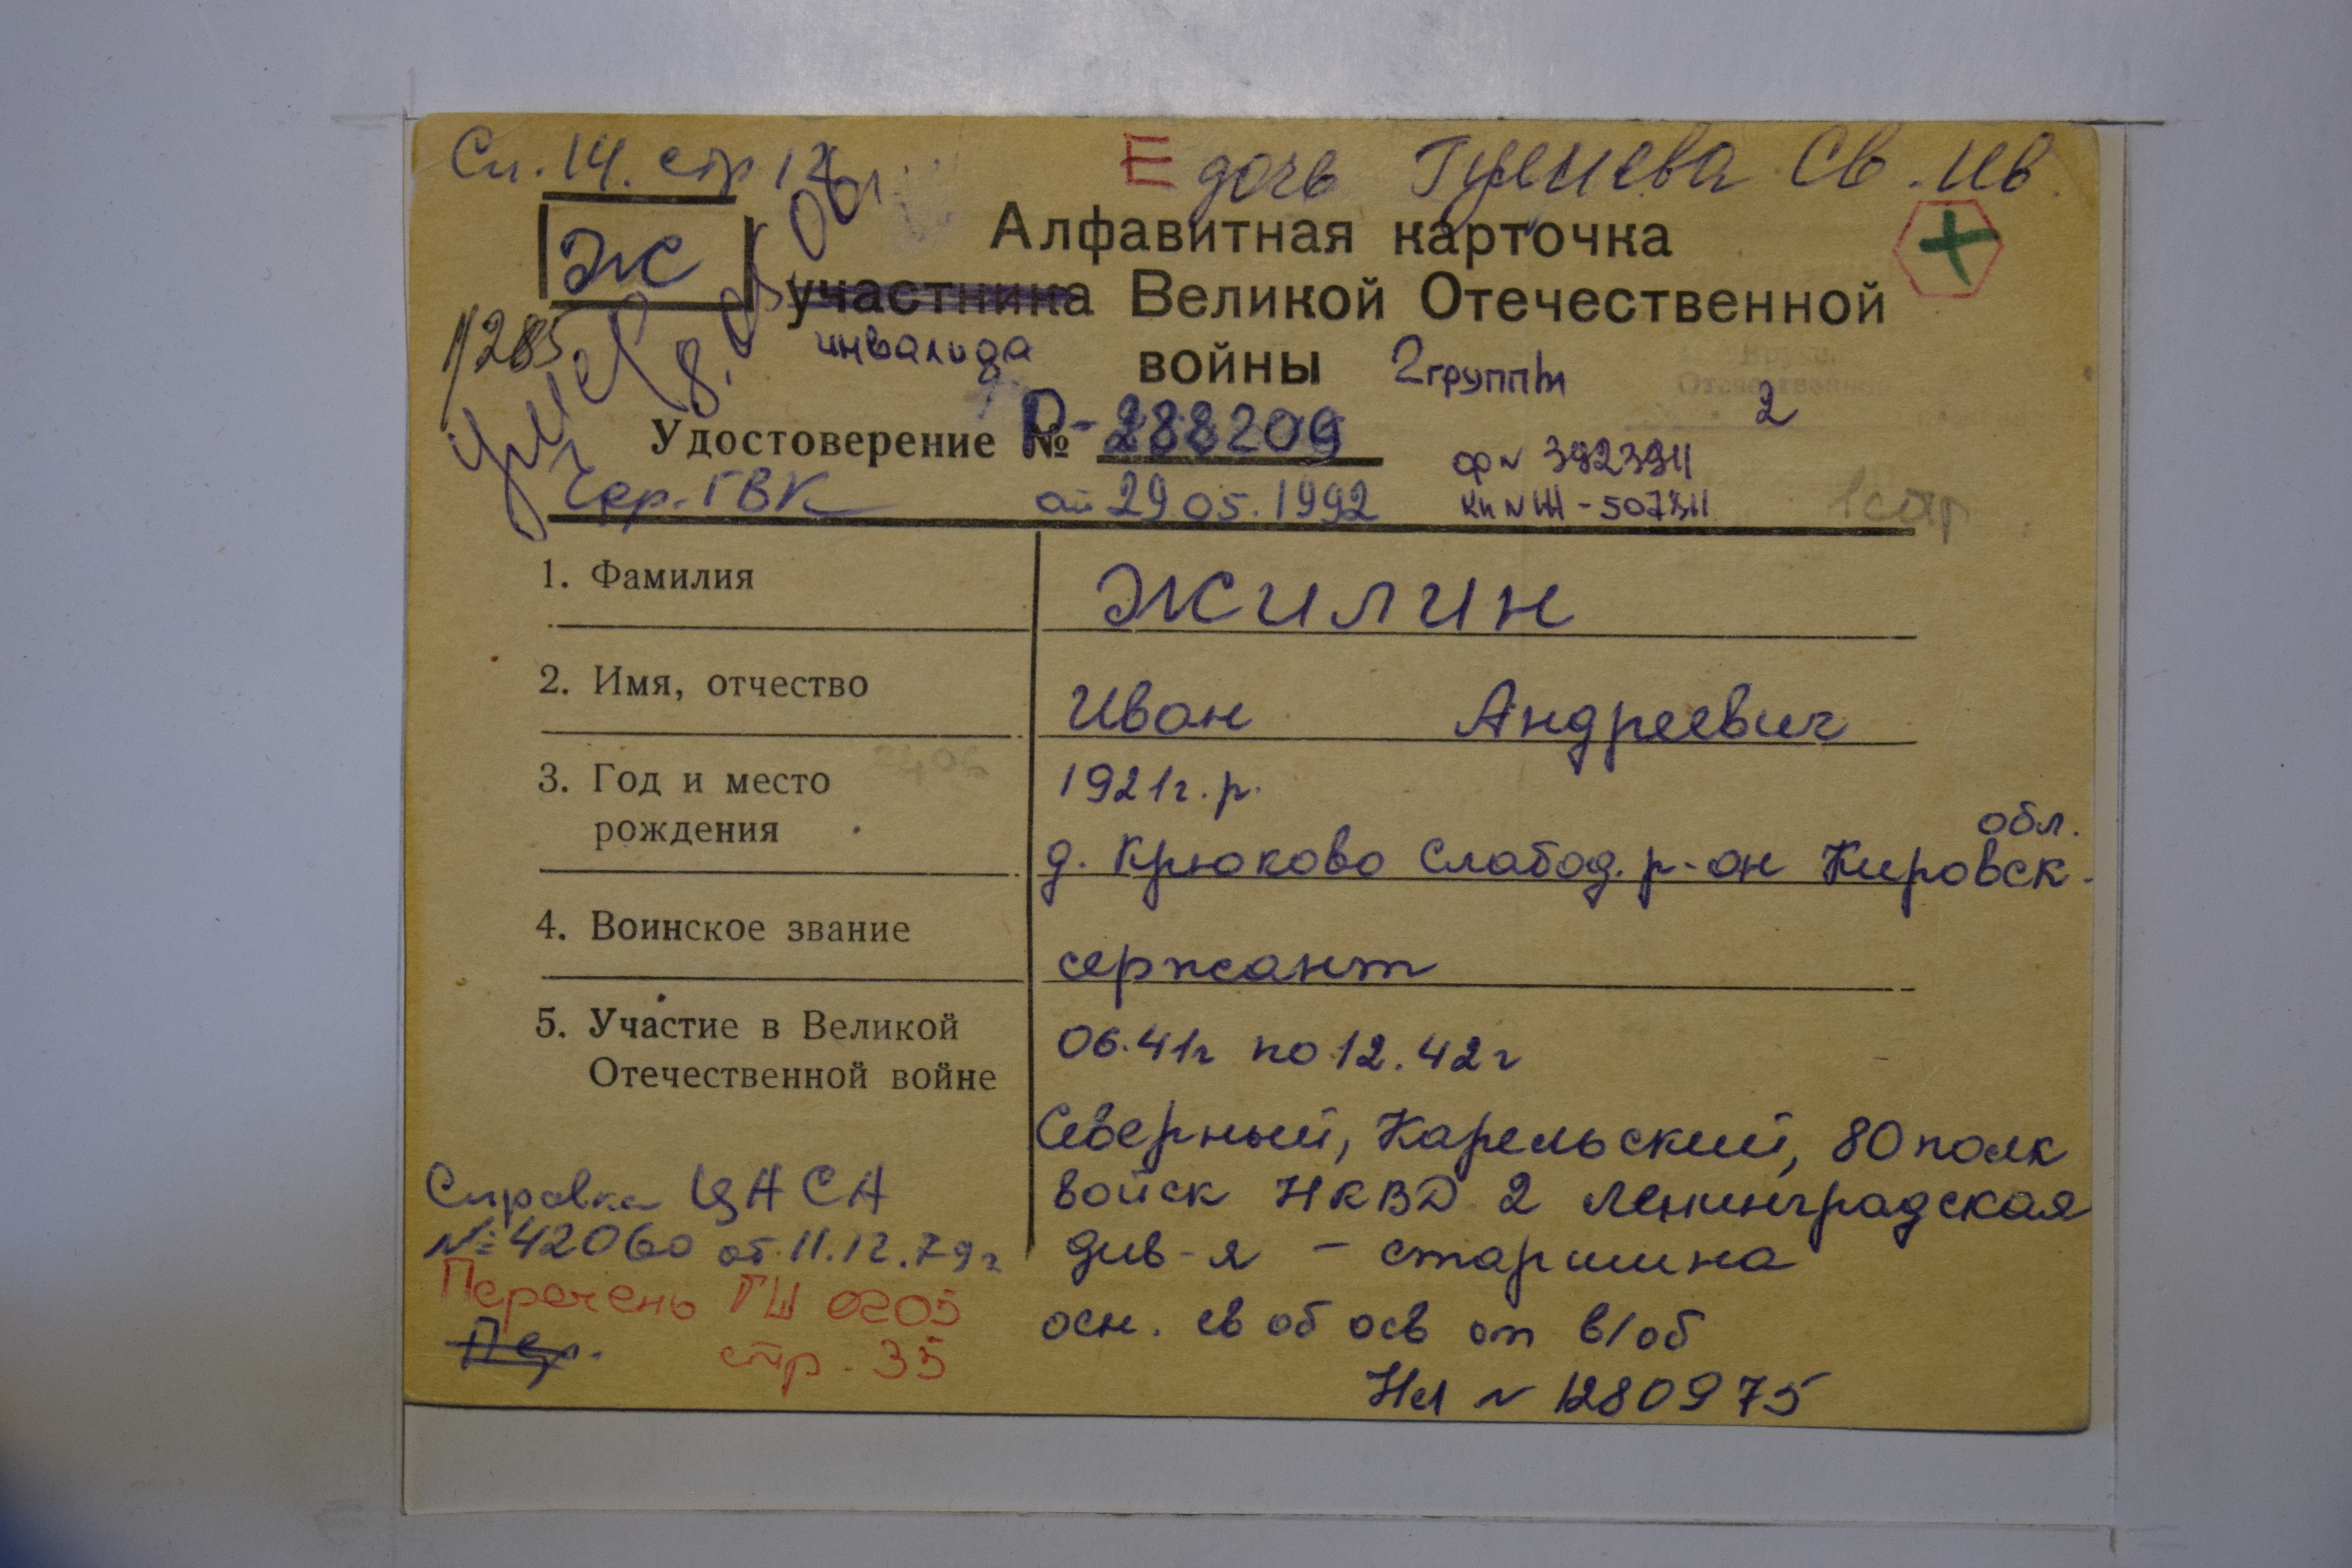 Сп. 14. стр 12
Е дочь Св. Ив.
Ж
Алфавитная карточка
участника Великой Отечественной
инвалида войны 2 группы
1/285
умер 8.05.
2
Удостоверение № Р-288209
ф № 3923911
Чер. ГВК от 29.05.1992
1 стр
1. Фамилия Жилин
2. Имя, отчество Иван Андреевич
2406
3. Год и место 1921г.р.
рождения
обл.
д. Крюково Слабод. р-он Кировск.
4. Воинское звание сержант
5. Участие в Великой 06.41г по 12.42г
Отечественной войне
Северный, Карельский, 80 полк
войск НКВД 2 Ленинградская
див-я - старшина
осн. св об осв от в/об
Нл № 1280975
Справка ЦАСА
№ 42060 от 11.12.79г
Перечень ГШ 0205
стр. 35
Пер.